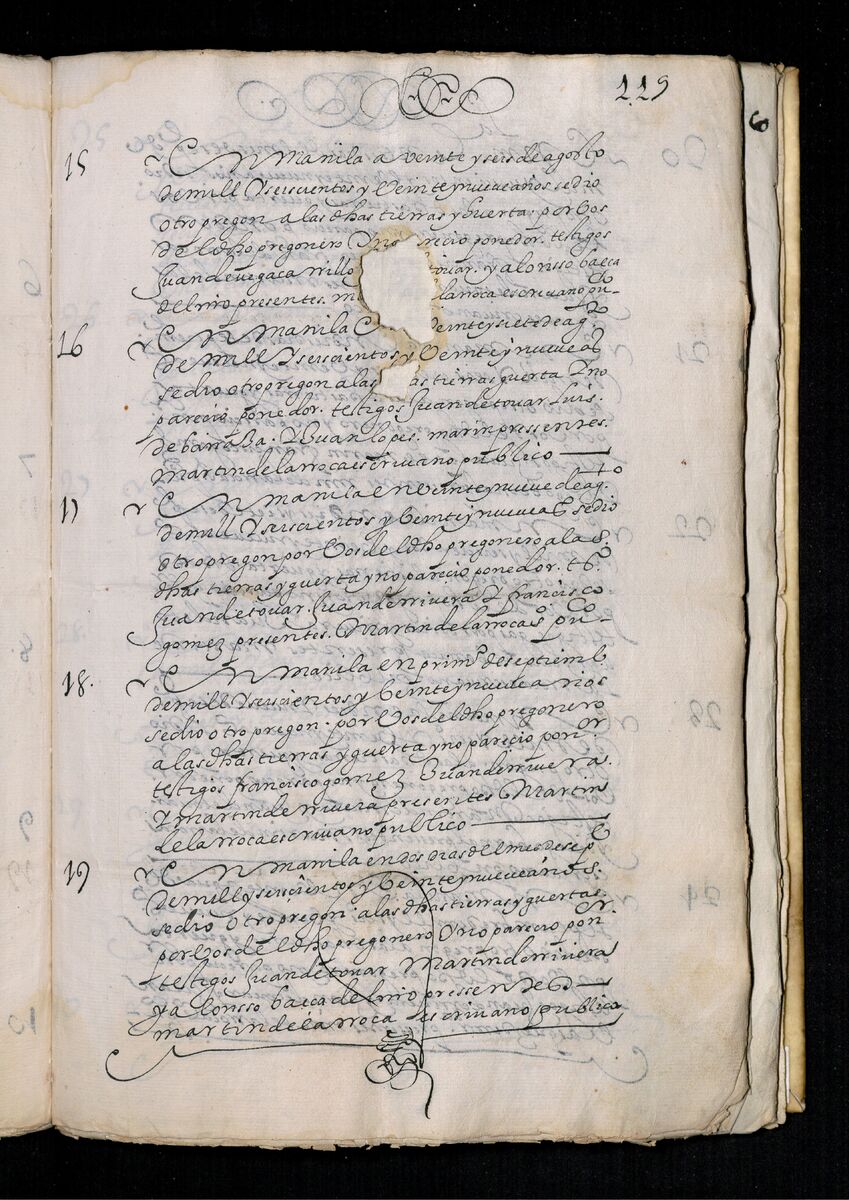 119
15 En manila a veinte y seis de agosto
de mill y seiscientos y veinte y nueve años se dio
otro pregon a las dhas tierras y huerta. por vos
de el dho pregonero y no recio ponedor. testigos
Juan de vega carrillo tovar. y alonsso baeça
del rrio presentes. m larroca escrivano puco
16 En manila veinte y siete de agto
de mill y seiscientos y veinte y nueve as
se dio otro pregon a las as tierras guerta y no
parecio ponedor. testigos Juan de tovar Luis.
de barra sa. y Juan lopes. marin pressentes.
martin de larroca escrivano publico
17 En manila en veinte y nueve de agto
de mill y seiscientos y veinte y nueve as se dio
otro pregon por vos de el dho pregonero a las.
dhas tierras y guerta y no parecio ponedor. tso
Juan de tovar. Juan de rrivera y francisco
gomez presentes. Martin de larroca so puco
18. En manila en primo de septiemb
de mill y seiscientos y veinte y nueve años
se dio otro pregon. por vos de el dho pregonero
a las dhas tierras y guerta y no parecio ponor.
testigos francisco gomez Juan de rrivera.
y martin de rrivera presentes Martin
de larroca escrivano publico
19 En manila en dos dias del mes de sepe
de mill y seiscientos y veinte y nueve años.
se dio otro pregon. a las dhas tierras y guertas.
por vos de el dho pregonero y no parecio ponor.
testigos Juan de tovar Martin de rrivera
y alonsso baeça del rrio pressentes
martin de larroca escrivano publico